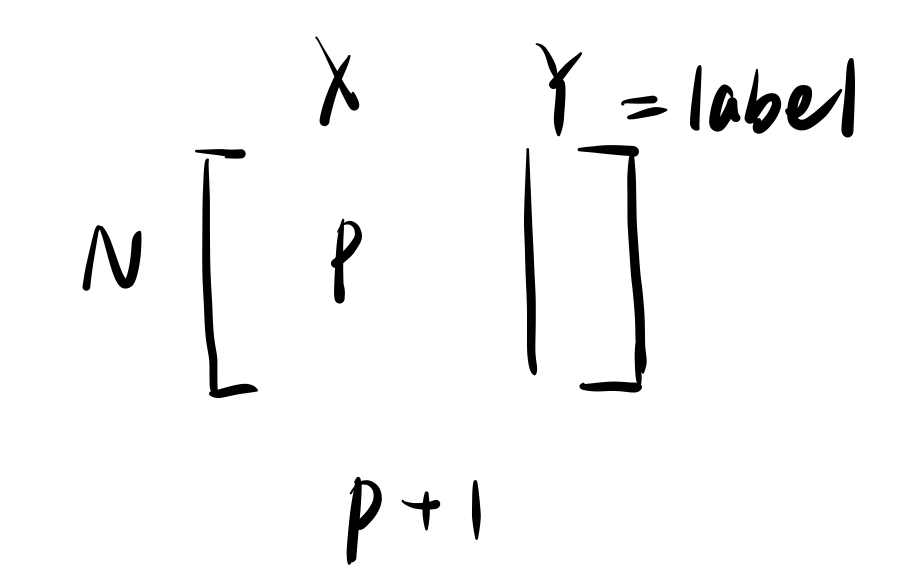 X Y = label
N [ P | ]
p + 1